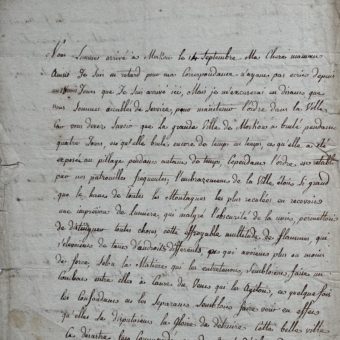 Nous Sommes arrivé à Moskou le 14 Septembre. Ma Chere maman
Aussi Je Suis en retard pour ma Correspondance n'ayant pas ecrit depuis
Jours que Je Suis arrivé ici, Mais je m'excuserai en disant que
nous Sommes accablé de Service, pour maintenir l'ordre dans la Ville
Car vous devez Savoir que la grande Ville de Moskou à brulé pendant
quatre Jours, et qu'elle brule encore de tems en tems, et qu'elle a été
exposée au pillage pendant autant de tems, Cependant l'ordre est retabli
par nos patrouilles frequentes, l'embrazement de la Ville, étais Si grand
que le haut de toutes les Montagnes les plus reculées en recevais
une impression de lumiere, qui malgré l'obscurité de la nuit, permettais
de distinguer toutes choses cette effroyable multitude de flammes qui
s'elevaient de tant d'endroits differents, et qui avaient plus ou moins
de force, Selon la Matiere qui les entretenais, Semblaient faire un
Combat entre elles à Cause du Vent qui les Agitais, et quelque fois
les Confondant et les Separant Semblais faire voir en effet
qu'elles Se disputaient la Gloire de détruire Cette belle ville